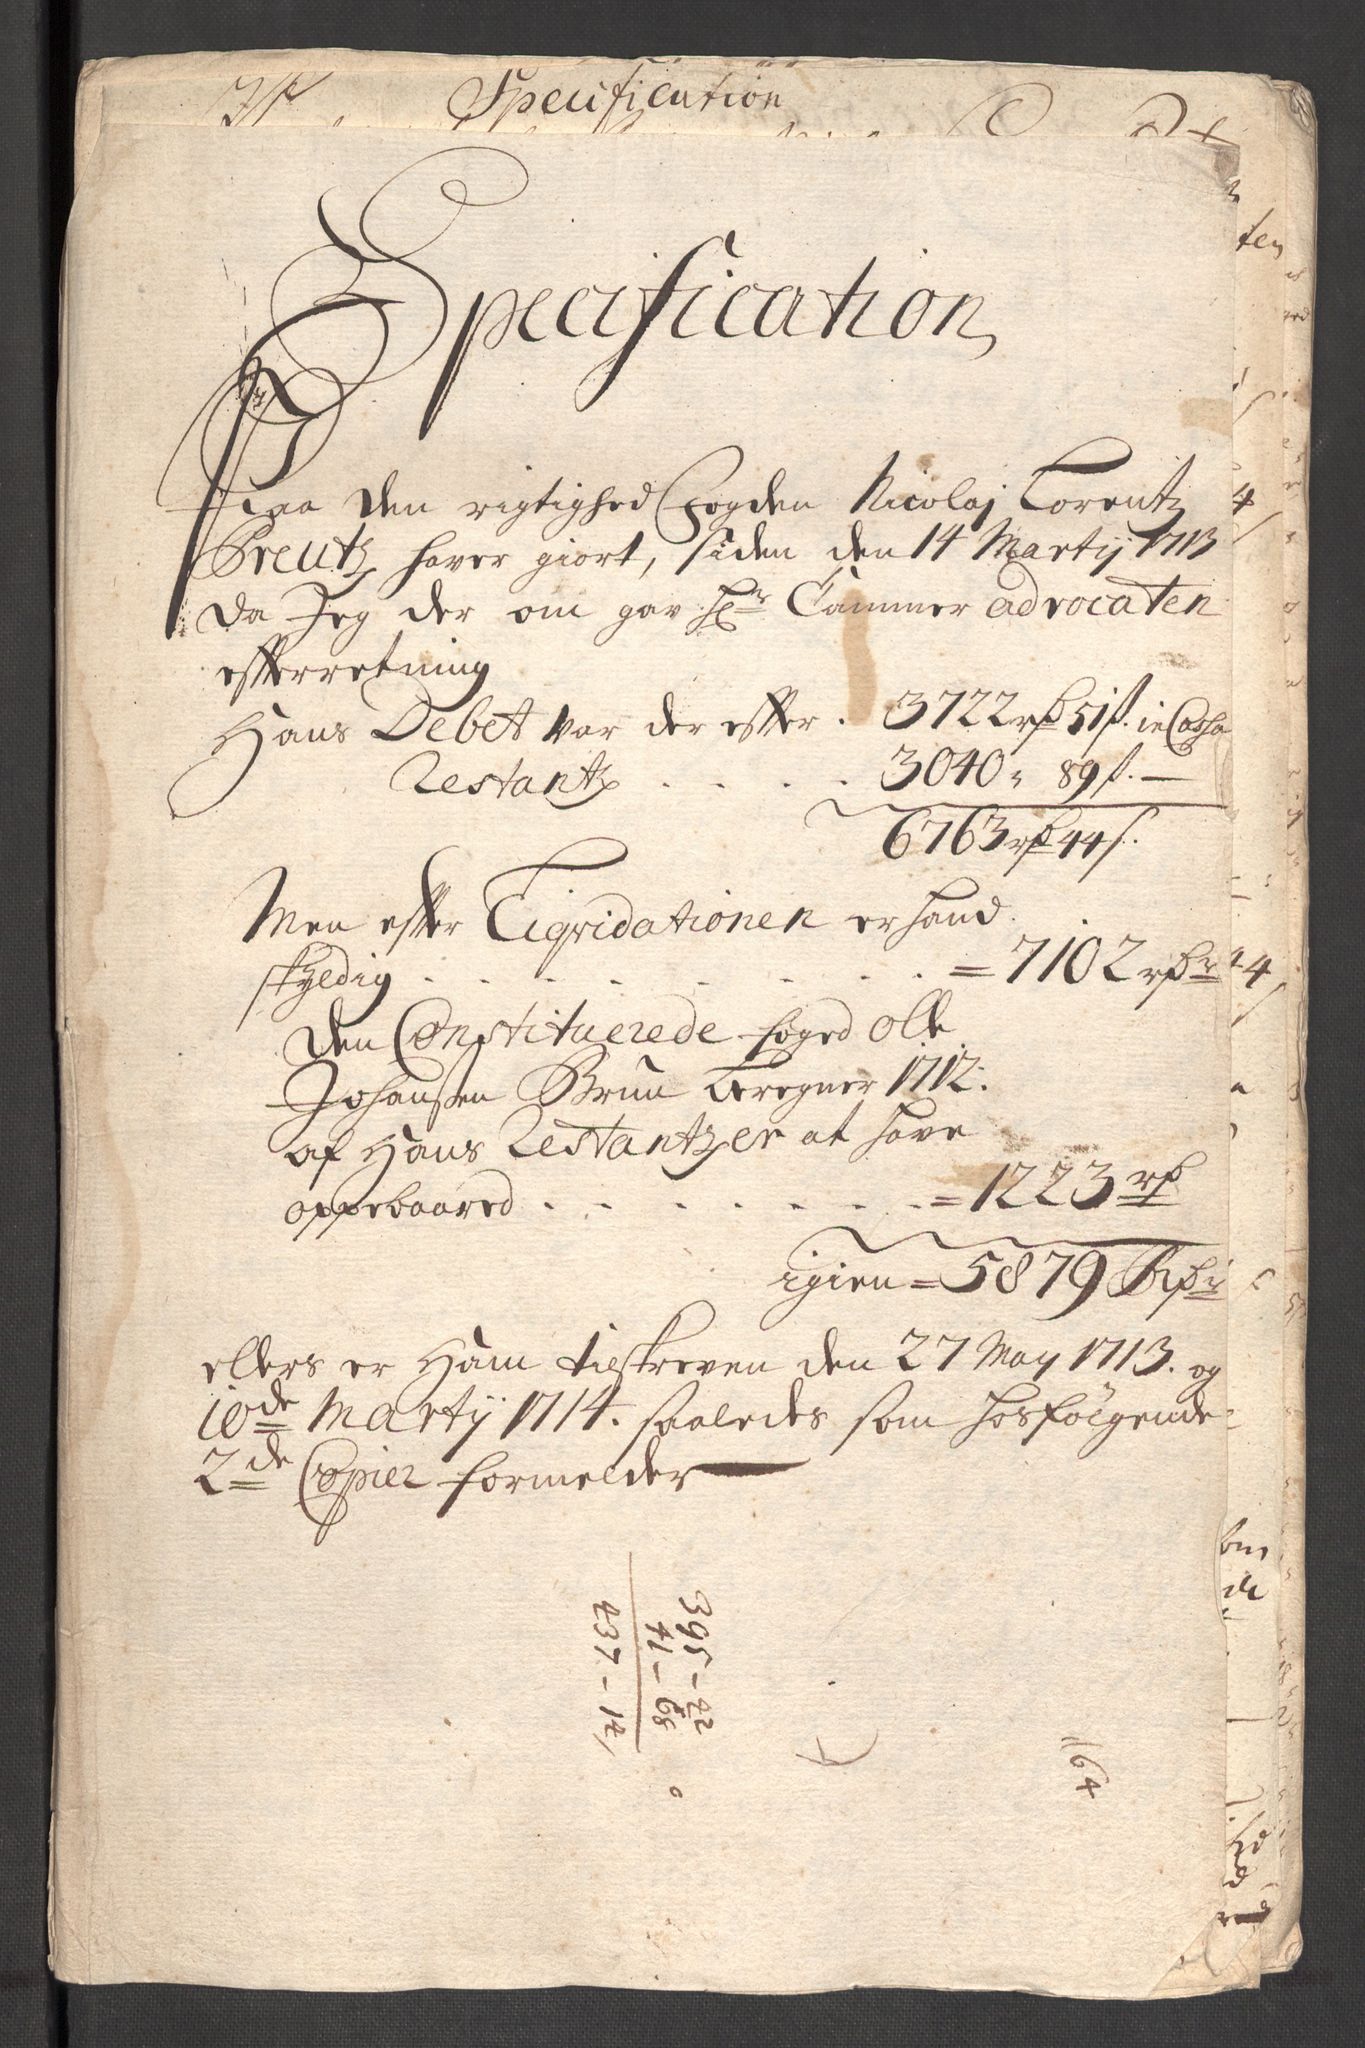 Specification
Specification
Paa den rigtighed Fogden Nicolaj Lorentz
Preutz haver giort, siden den 14 Martij 1713
da Jeg der om gav Hr Cammer advocaten
efterretning
Hans Debet var der efter . 3722 rd 51 s. in Cassa
Restantz . . . . 3040 " 89 s. —
6763 rd 44 s.
Men efter Liqvidationen er hand
skyldig . . . . . . . = 7102 rdr
den Constituerede foged Olle
Johansen Bruun beregner 1712.
af Hans Restantzer at have
oppebaared . . . . . . . = 1223 rd
igien = 5879 Rdr
ellers er Ham tilskreven den 27 May 1713. og
10de Martij 1714. saaledes som hosfølgende
2de Copier formelder
395 - 42
41 - 68
437 - 14
164